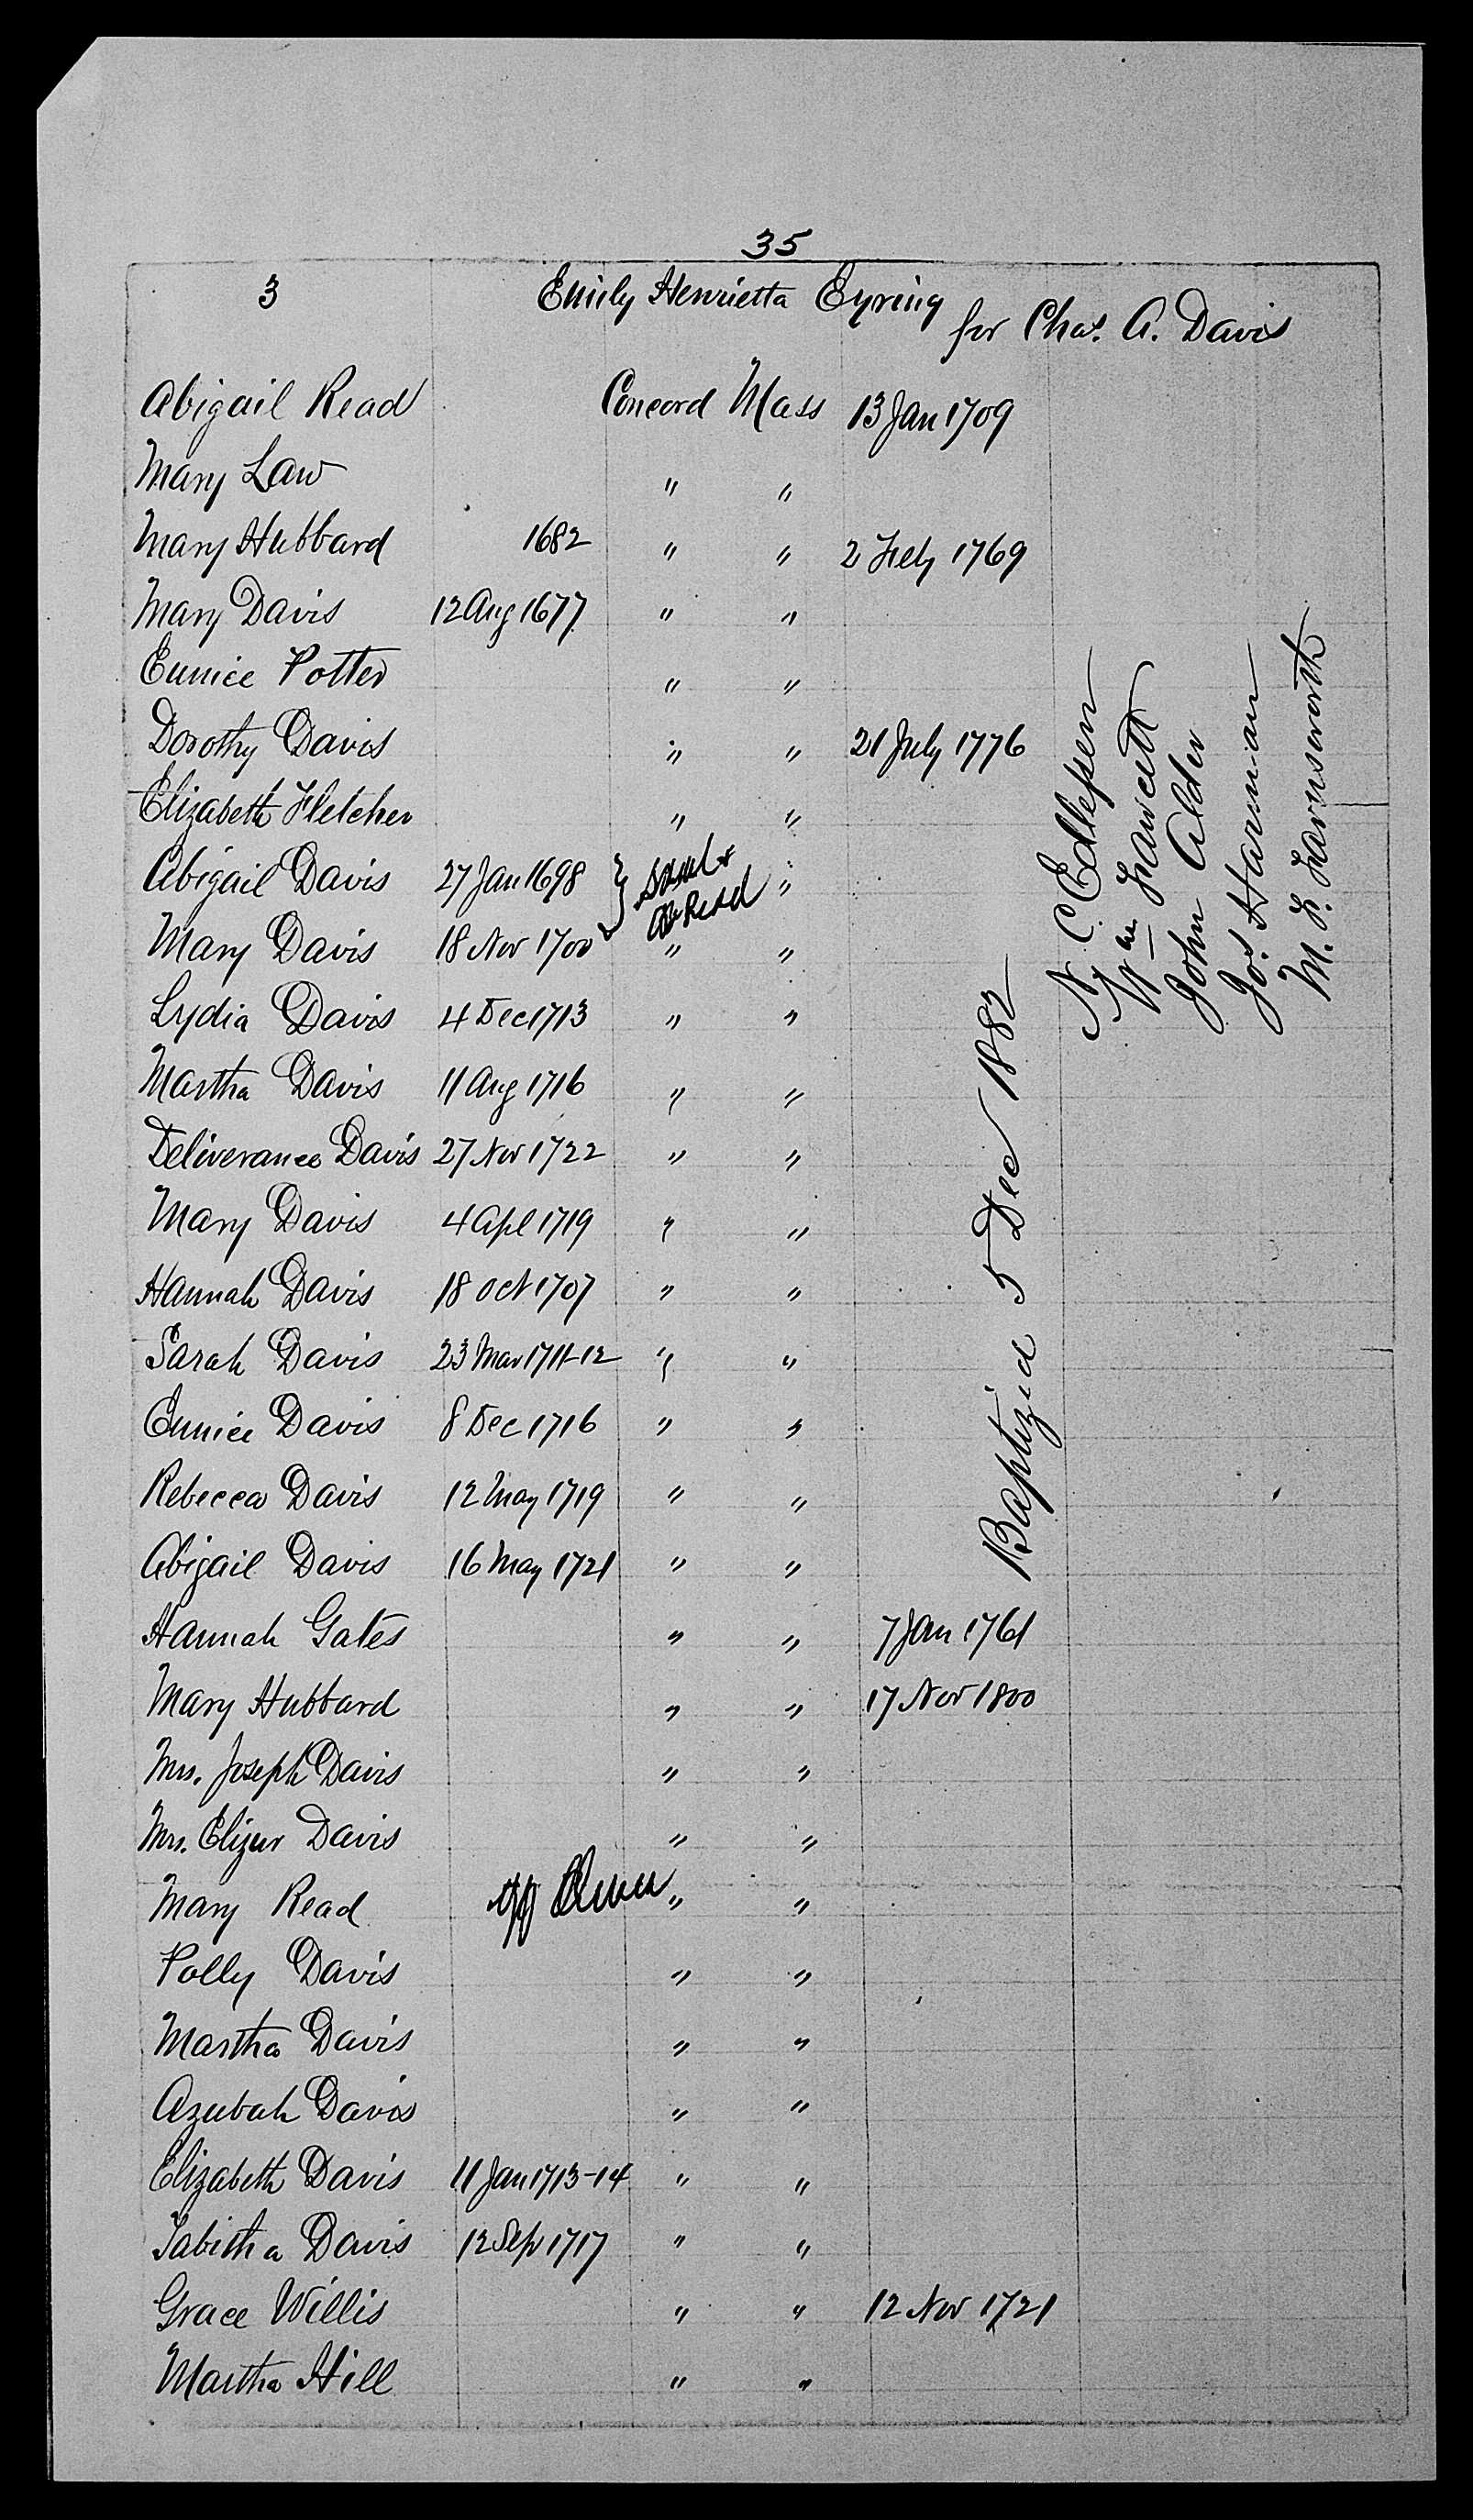 35
3 Emily Henrietta Eyring for Chas. A. Davis
Abigail Read Concord Mass 13 Jan 1709
Mary Law " "
Mary Hubbard 1682 " " 2 Feby 1769
Mary Davis 12 Aug 1677 " "
Eunice Potter " "
Dorothy Davis " " 21 July 1776
Elizabeth Fletcher " "
Abigail Davis 27 Jan 1698 } Saml & "
Ab Read
Mary Davis 18 Nov 1700 " "
Lydia Davis 4 Dec 1713 " "
Martha Davis 11 Aug 1716 " "
Deliverance Davis 27 Nov 1722 " "
Mary Davis 4 Apl 1719 " "
Hannah Davis 18 Oct 1707 " "
Sarah Davis 23 Mar 1711-12 " "
Eunice Davis 8 Dec 1716 " "
Rebecca Davis 12 May 1719 " "
Abigail Davis 16 May 1721 " "
Hannah Gates " " 7 Jan 1761
Mary Hubbard " " 17 Nov 1800
Mrs. Joseph Davis " "
Mrs. Elizur Davis " "
Mary Read " "
Polly Davis " "
Martha Davis " "
Azubah Davis " "
Elizabeth Davis 11 Jan 1713-14 " "
Tabitha Davis 12 Sep 1717 " "
Grace Willis " " 12 Nov 1721
Martha Hill " "
Baptized 5 Dec 1882
N. C. Edlefsen
Wm Fawcett
John Alder
Jos Harman
M. F. Farnsworth